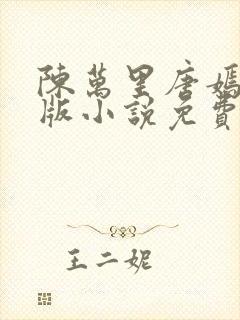 陳萬里唐嫣
版小説免費
王二妮